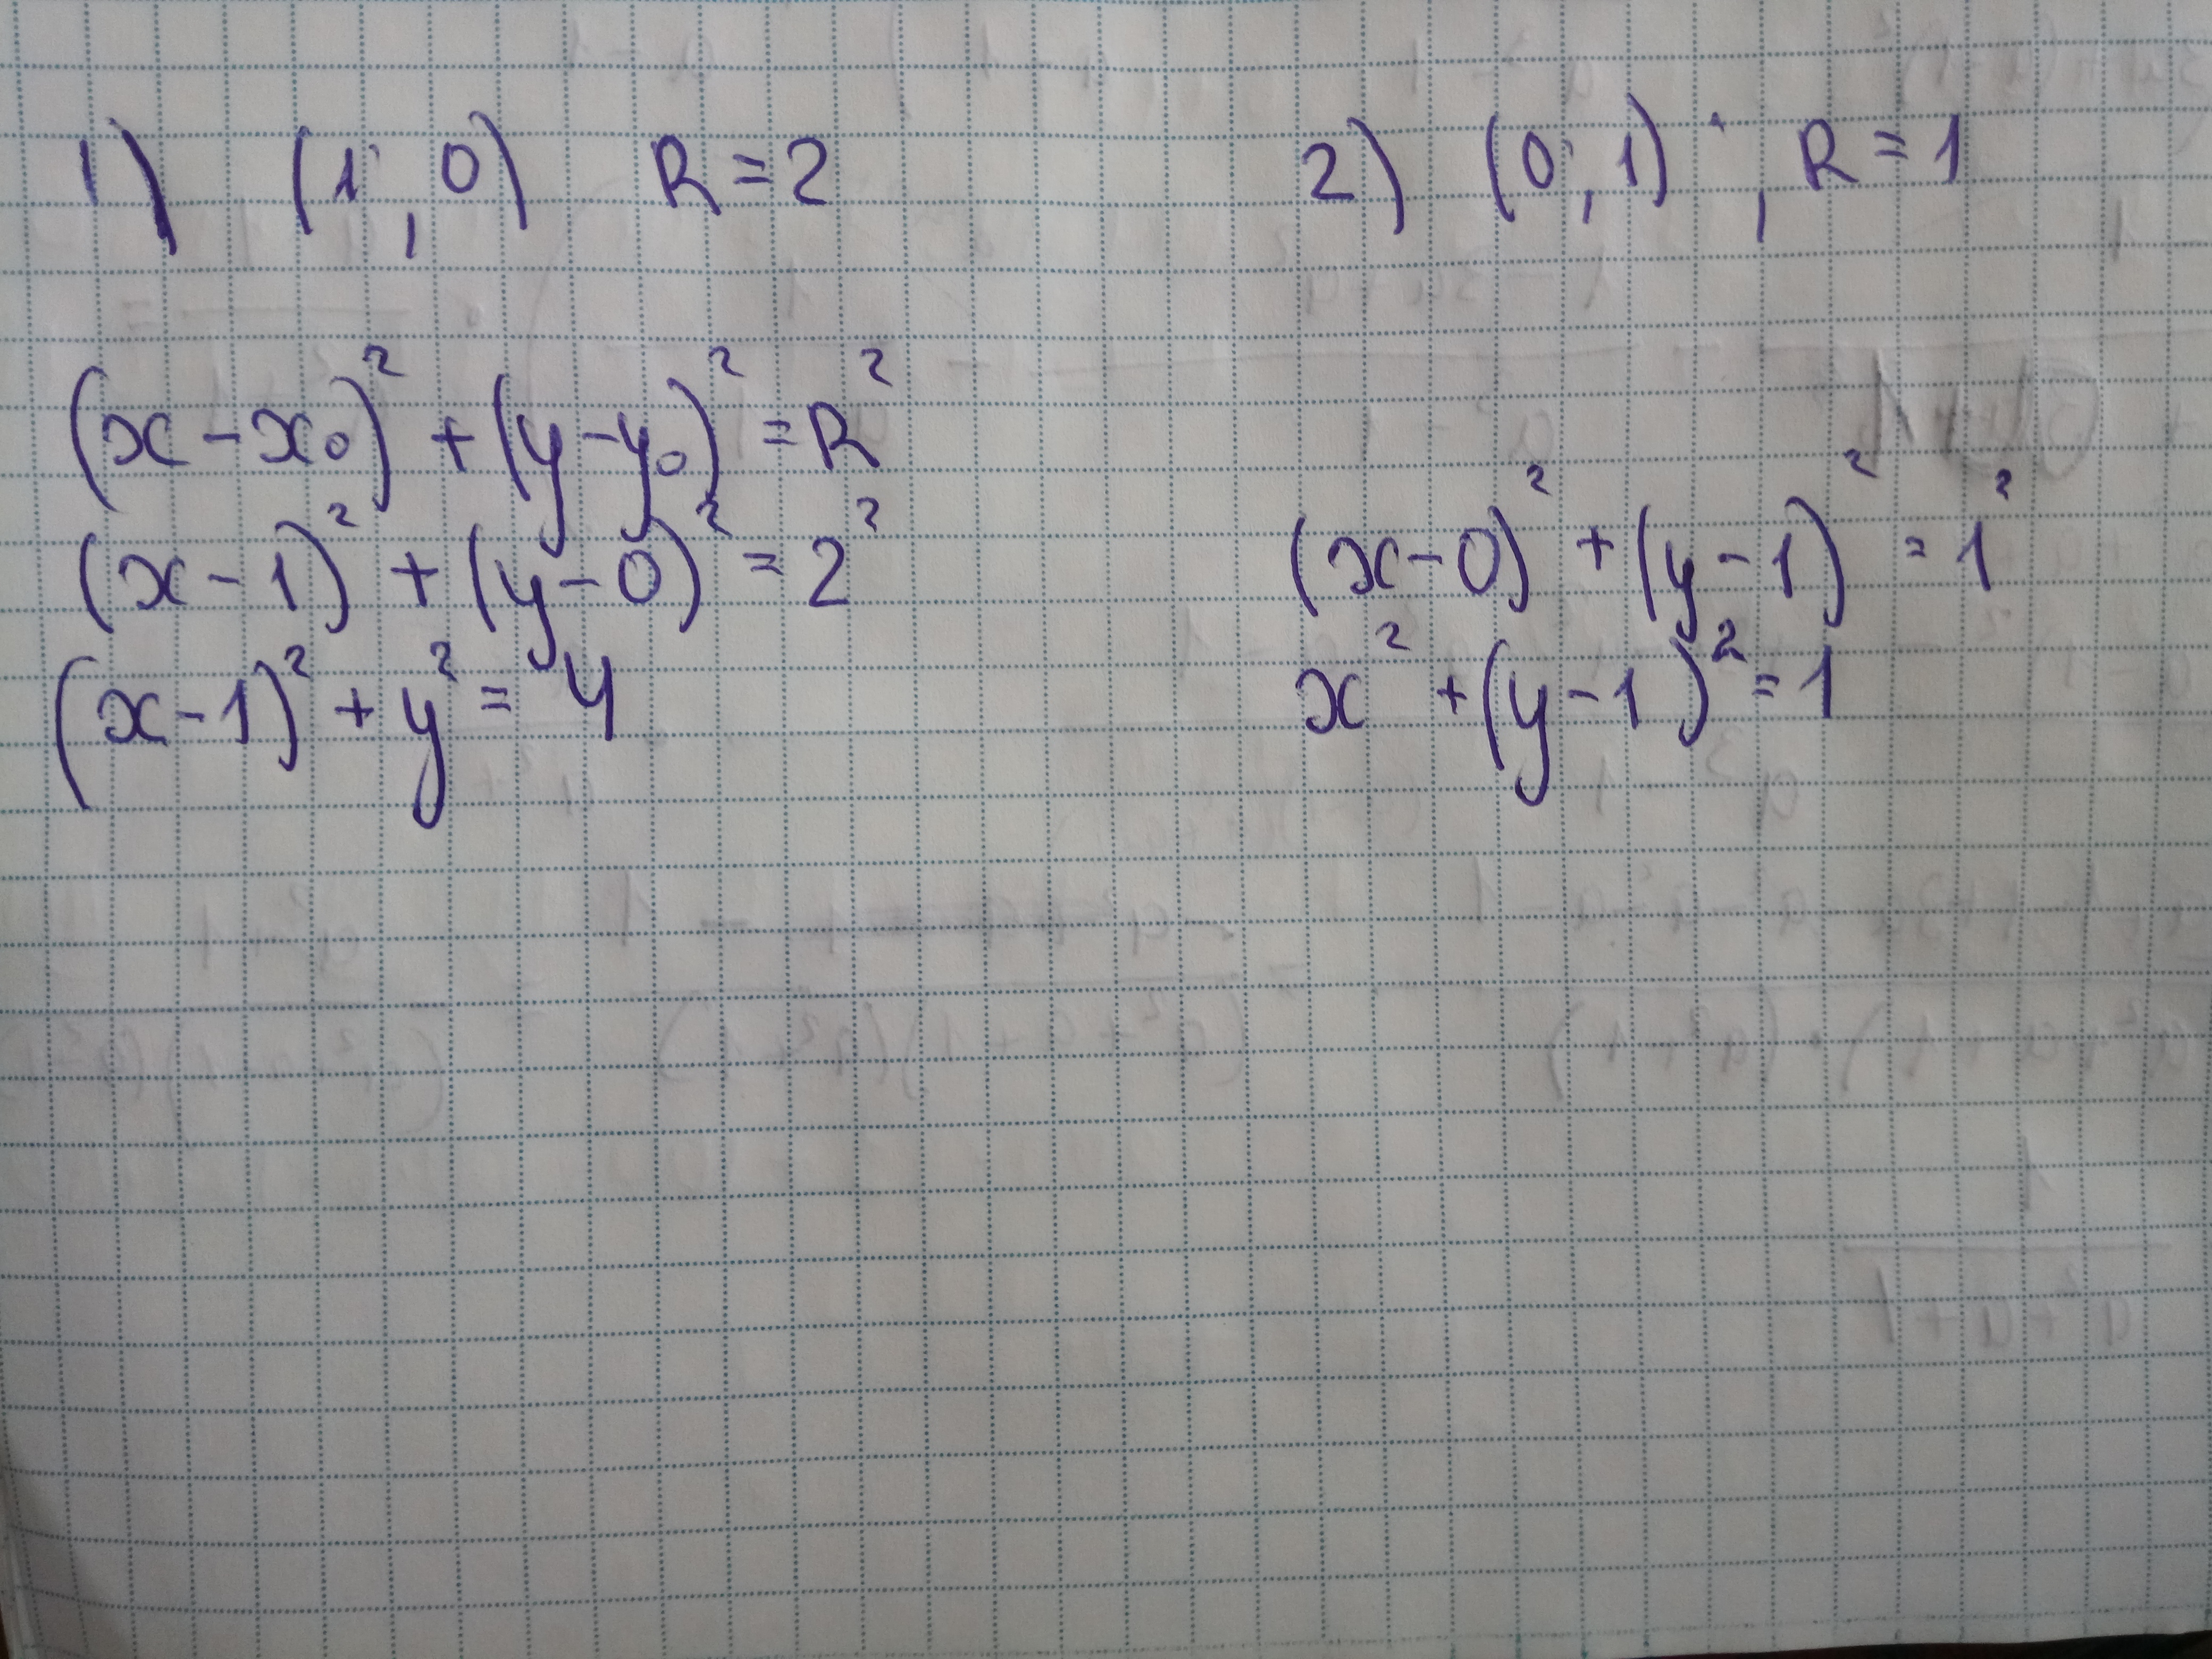 1) (1, 0) R = 2
(x - x₀)² + (y - y₀)² = R²
(x - 1)² + (y - 0)² = 2²
(x - 1)² + y² = 4
2) (0, 1), R = 1
(x - 0)² + (y - 1)² = 1²
x² + (y - 1)² = 1